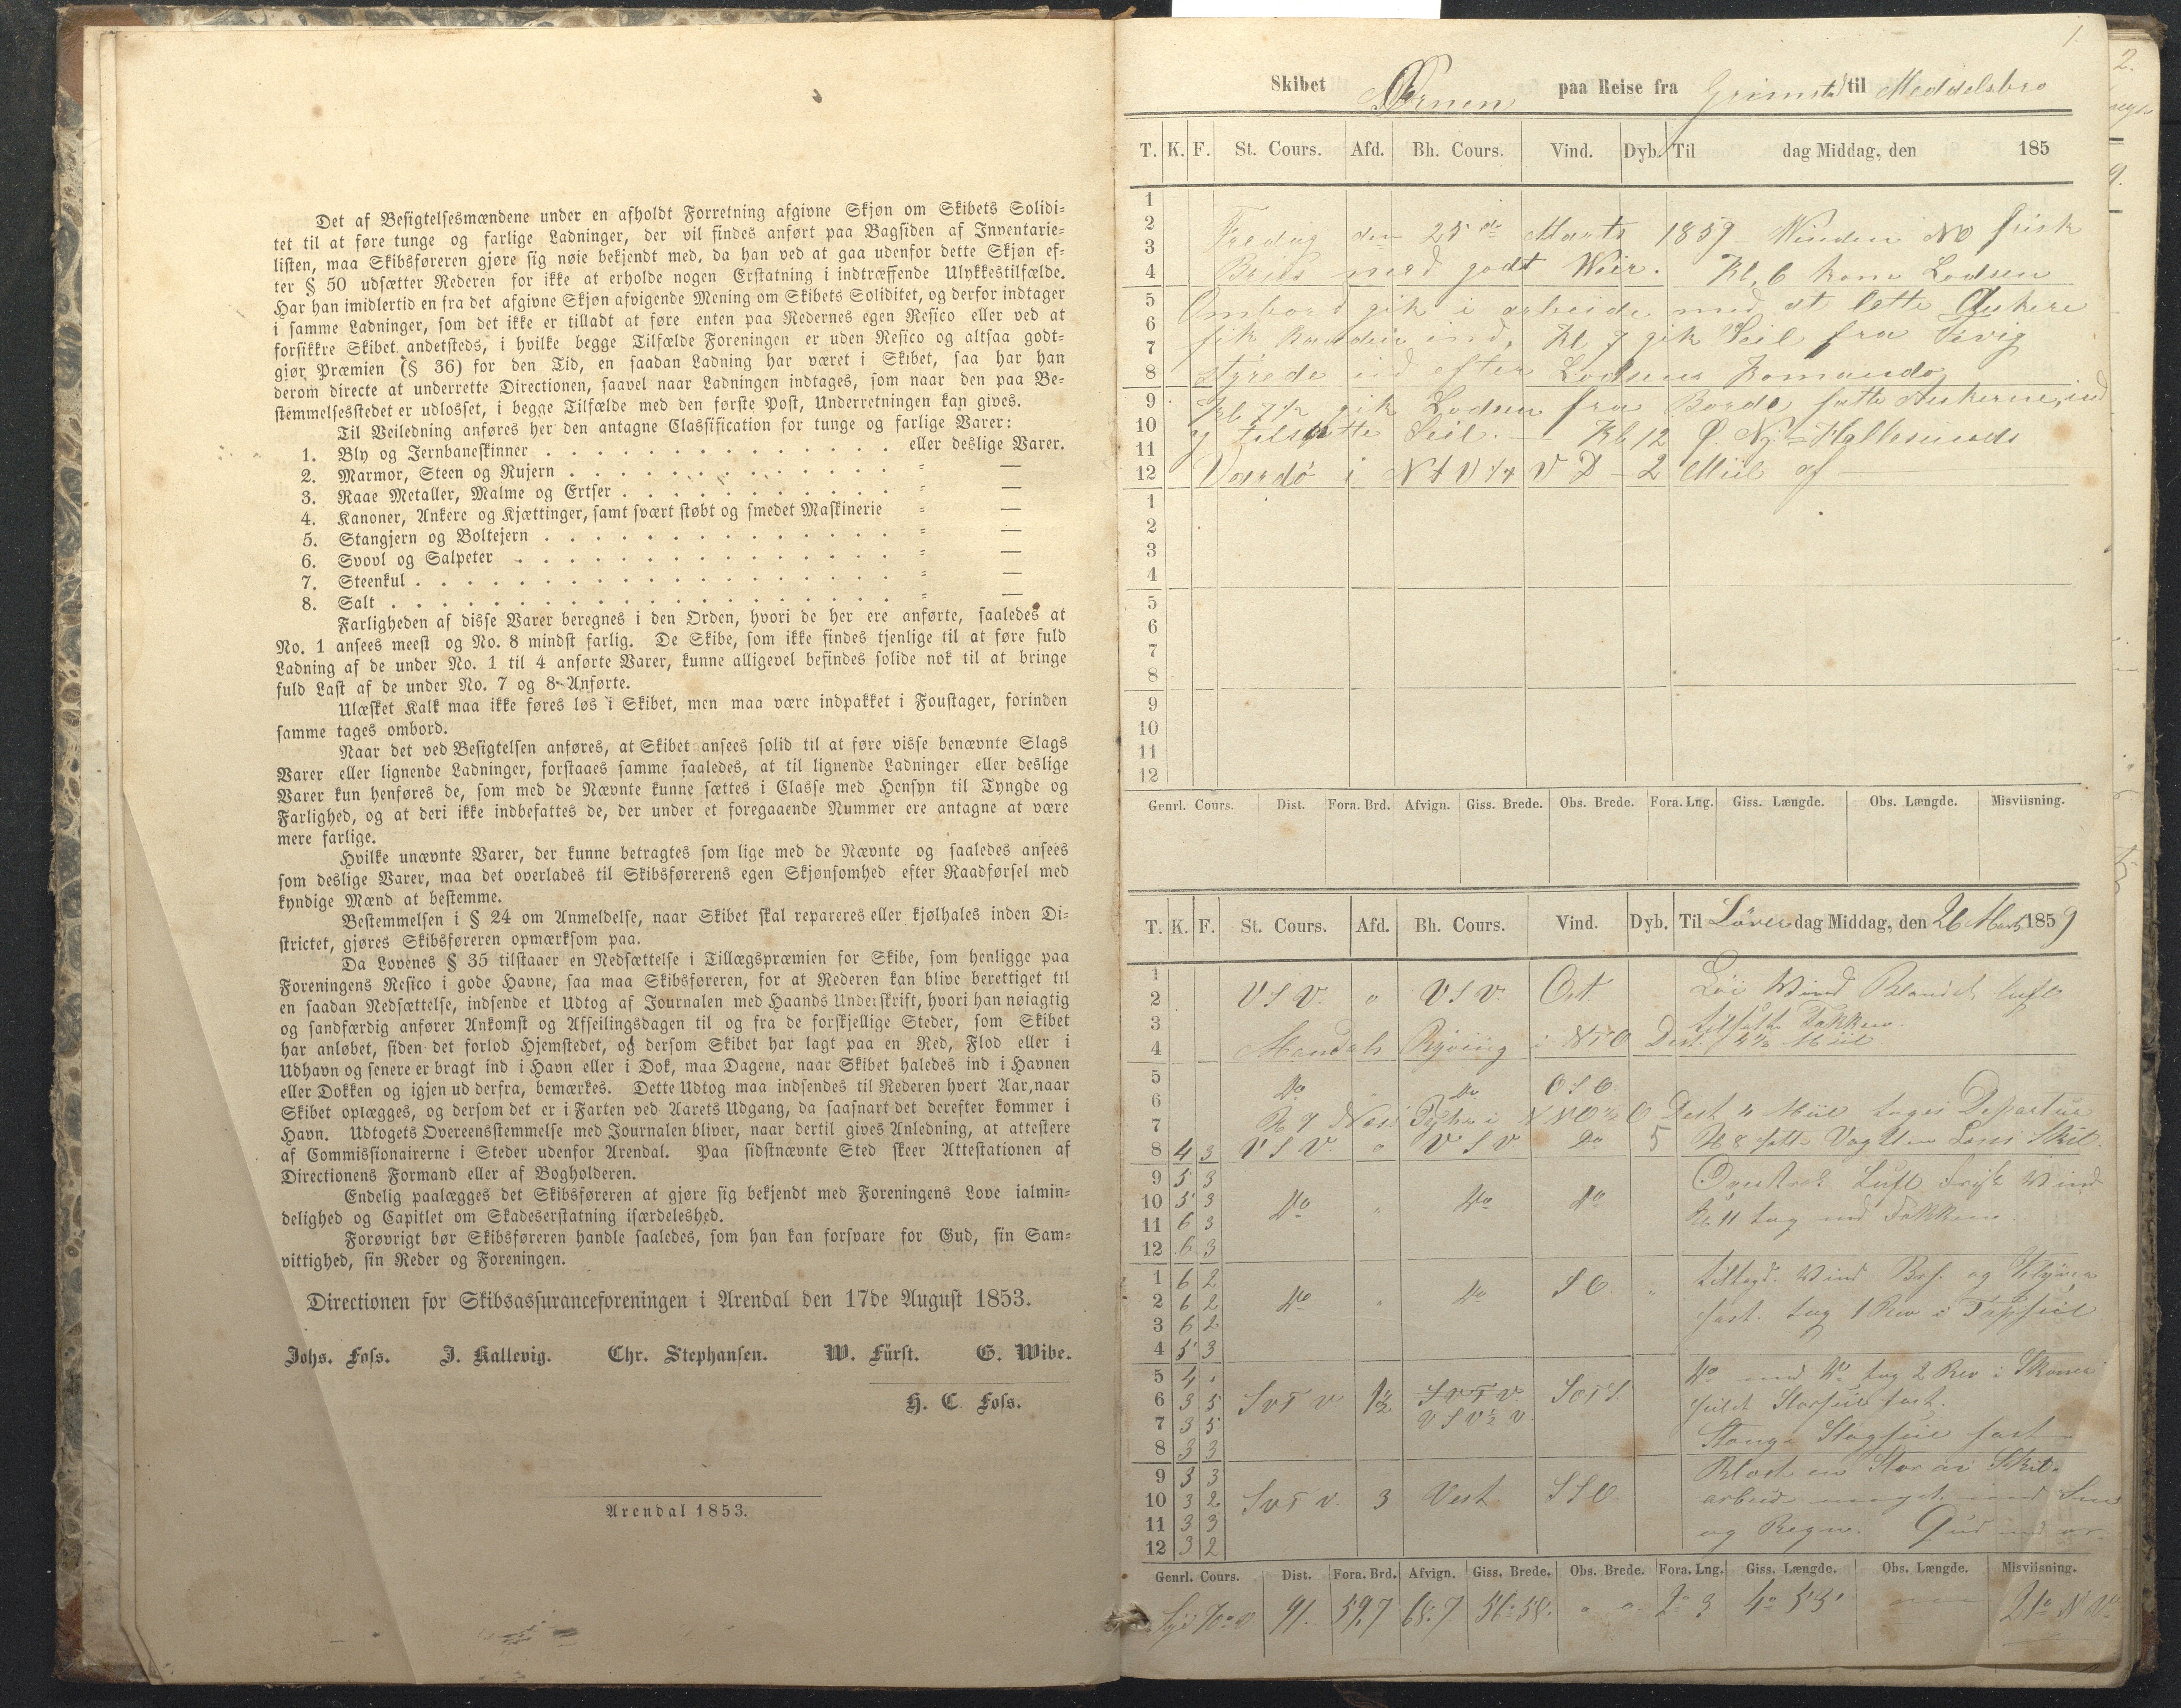 Det af Besigtelsesmændene under en afholdt Forretning afgivne Skjøn om Skibets Solidi-
tet til at føre tunge og farlige Ladninger, der vil findes anført paa Bagsiden af Inventarie-
listen, maa Skibsføreren gjøre sig nøie bekjendt med, da han ved at gaa udenfor dette Skjøn ef-
ter § 50 udsætter Rederen for ikke at erholde nogen Erstatning i indtræffende Ulykkestilfælde.
Har han imidlertid en fra det afgivne Skjøn afvigende Mening om Skibets Soliditet, og derfor indtager
i samme Ladninger, som det ikke er tilladt at føre enten paa Redernes egen Resico eller ved at
forsikkre Skibet andetsteds, i hvilke begge Tilfælde Foreningen er uden Resico og altsaa godt-
gjør Præmien (§ 36) for den Tid, en saadan Ladning har været i Skibet, saa har han
derom directe at underrette Directionen, saavel naar Ladningen indtages, som naar den paa Be-
stemmelsesstedet er udlosset, i begge Tilfælde med den første Post, Underretningen kan gives.
Til Veiledning anføres her den antagne Classification for tunge og farlige Varer:
1. Bly og Jernbaneskinner . . . . . . . . . . . . . eller deslige Varer.
2. Marmor, Steen og Rujern . . . . . . . . . . . . . = —
3. Raae Metaller, Malme og Ertser . . . . . . . . . . = —
4. Kanoner, Ankere og Kjættinger, samt svært støbt og smedet Maskinerie = —
5. Stangjern og Boltejern . . . . . . . . . . . . . . = —
6. Svovl og Salpeter . . . . . . . . . . . . . . . = —
7. Steenkul . . . . . . . . . . . . . . . . . . . = —
8. Salt . . . . . . . . . . . . . . . . . . . . = —
Farligheden af disse Varer beregnes i den Orden, hvori de her ere anførte, saaledes at
No. 1 ansees meest og No. 8 mindst farlig. De Skibe, som ikke findes tjenlige til at føre fuld
Ladning af de under No. 1 til 4 anførte Varer, kunne alligevel befindes solide nok til at bringe
fuld Last af de under No. 7 og 8 Anførte.
Ulæsket Kalk maa ikke føres løs i Skibet, men maa være indpakket i Foustager, forinden
samme tages ombord.
Naar det ved Besigtelsen anføres, at Skibet ansees solid til at føre visse benævnte Slags
Varer eller lignende Ladninger, forstaaes samme saaledes, at til lignende Ladninger eller deslige
Varer kun henføres de, som med de Nævnte kunne sættes i Classe med Hensyn til Tyngde og
Farlighed, og at deri ikke indbefattes de, der under et foregaaende Nummer ere antagne at være
mere farlige.
Hvilke unævnte Varer, der kunne betragtes som lige med de Nævnte og saaledes ansees
som deslige Varer, maa det overlades til Skibsførerens egen Skjønsomhed efter Raadførsel med
kyndige Mænd at bestemme.
Bestemmelsen i § 24 om Anmeldelse, naar Skibet skal repareres eller kjølhales inden Di-
strictet, gjøres Skibsføreren opmærksom paa.
Da Lovenes § 35 tilstaaer en Nedsættelse i Tillægspræmien for Skibe, som henligge paa
Foreningens Resico i gode Havne, saa maa Skibsføreren, for at Rederen kan blive berettiget til
en saadan Nedsættelse, indsende et Udtog af Journalen med Haands Underskrift, hvori han nøiagtig
og sandfærdig anfører Ankomst og Afseilingsdagen til og fra de forskjellige Steder, som Skibet
har anløbet, siden det forlod Hjemstedet, og dersom Skibet har lagt paa en Red, Flod eller i
Udhavn og senere er bragt ind i Havn eller i Dok, maa Dagene, naar Skibet haledes ind i Havnen
eller Dokken og igjen ud derfra, bemærkes. Dette Udtog maa indsendes til Rederen hvert Aar, naar
Skibet oplægges, og dersom det er i Farten ved Aarets Udgang, da saasnart det derefter kommer i
Havn. Udtogets Overeensstemmelse med Journalen bliver, naar dertil gives Anledning, at attestere
af Commissionairerne i Steder udenfor Arendal. Paa sidstnævnte Sted skeer Attestationen af
Directionens Formand eller af Bogholderen.
Endelig paalægges det Skibsføreren at gjøre sig bekjendt med Foreningens Love ialmin-
delighed og Capitlet om Skadeserstatning isærdeleshed.
Forøvrigt bør Skibsføreren handle saaledes, som han kan forsvare for Gud, sin Sam-
vittighed, sin Reder og Foreningen.
Directionen for Skibsassuranceforeningen i Arendal den 17de August 1853.
Johs. Foss. J. Kallevig. Chr. Stephansen. W. Fürst. G. Wibe.
H. C. Foss.
Arendal 1853.
1.
Skibet Ørnen paa Reise fra Grimstad til Meddelsbro
T. K. F. St. Cours. Afd. Bh. Cours. Vind. Dyb. Til dag Middag, den 185
1
2 Fredag den 25de Marts 1859 Winden NO frisk
3
4 Bris med godt Weir. Kl. 6 kom Lodsen
5 Ombord gik i arbeide med at lette Ankere
6
7 fik Baaden ind, Kl 7 gik Seil fra Vevig
8 styrede ud efter Lodsens Komando
9 Kl 7½ gik Lodsen fra Borde satte Ankerne ind
10 Seil. — Kl 12
11
12 Vardø i 2 Miil af
1
2
3
4
5
6
7
8
9
10
11
12
Genrl. Cours. Dist. Fora. Brd. Afvign. Giss. Brede. Obs. Brede. Fora. Lng. Giss. Længde. Obs. Længde. Misviisning.
T. K. F. St. Cours. Afd. Bh. Cours. Vind. Dyb. Til Löver dag Middag, den 26 Marts 1859
1
2 V S V. o V S V. Ost. Löi Wind Blandet luft
3
4 Mandals Ryving i NTO Dist. 4½ Miil
5 Do Do O S O
6
7 Kl 7 i NNO½O Dist 4 Miil Departur
8 4 3 V S V. o V S V Do 5 Kl 8 satte Vagt
9 5 3
10 5 3 Do " Do Do Luft frisk Wind
11 6 3 Kl. 11 tog
12 6 3
1 6 2 Wind og Klyver
2 6 2 Do " Do S O. "
3 6 2 fast. tog 1 Rev i Topseil
4 5 3
5 4 1 tog 2 Rev i
6 3 5 S V T V 1½ S V T V S O T S
7 3 5 V S V ½ V
8 3 3 fast
9 3 3
10 3 2 S V T V. 3 Vest S S O. arbeide
11 3 3 og Regn. Gud
12 3 2
Genrl. Cours. Dist. Fora. Brd. Afvign. Giss. Brede. Obs. Brede. Fora. Lng. Giss. Længde. Obs. Længde. Misviisning.
Syd 70° V 91. 59,7 68.7 2° 3 4° 53' 21° N V
2.